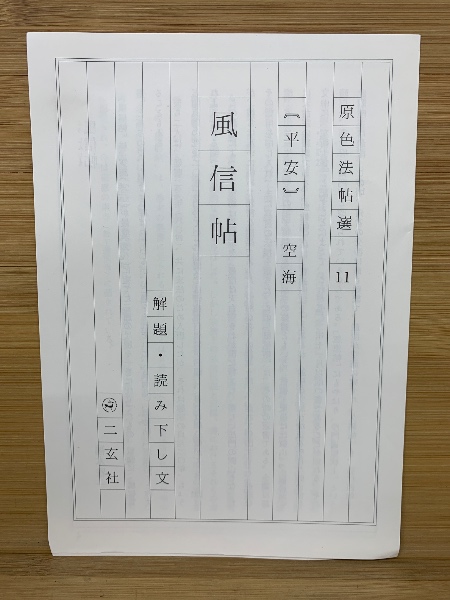 原色法帖選 11
〔平安〕 空海
風信帖
解題・読み下し文
二玄社